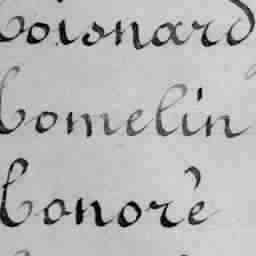 Coisnard
Comelin
Conorè